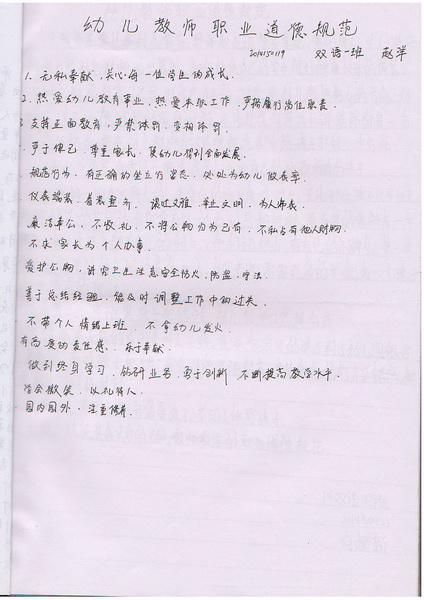 幼儿教师职业道德规范
2014150119 双语一班 赵洋
1. 无私奉献,关心每一位学生的成长.
2. 热爱幼儿教育事业,热爱本职工作,严格履行岗位职责.
3. 支持正面教育,严禁体罚、变相体罚.
严于律己,尊重家长,使幼儿得到全面发展.
规范行为,有正确的坐立行姿态,处处为幼儿做表率.
仪表端装,着装整齐,谈吐文雅,举止文明,为人师表.
廉洁奉公,不收礼,不将公物占为己有,不私占有他人财物.
不求家长为个人办事.
爱护公物,讲究卫生注意安全防火、防盗、守法.
善于总结经验,能及时调整工作中的过失.
不带个人情绪上班,不拿幼儿发火.
有高度的责任感,乐于奉献.
做到终身学习,钻研业务,勇于创新,不断提高教学水平.
学会微笑,以礼待人.
园内园外,注重修养.